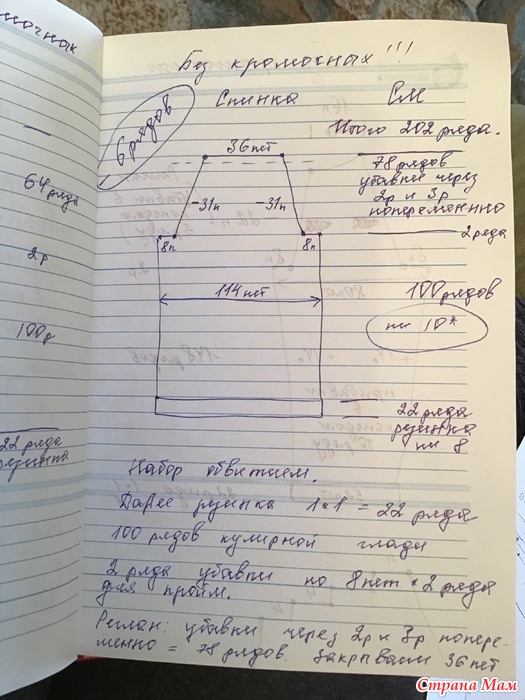 Без кромочных!!!
6 рядов
Спинка
СМ
Итого 202 ряда.
36 пет
78 рядов
убавки через
2р и 3р
попеременно
-31п
-31п
8п
8п
2 ряда
114 пет
100 рядов
пл 10*
22 ряда
резинка
пл. 8
Набор обвитием.
Далее резинка 1x1 = 22 ряда
100 рядов кулирной глади
2 ряда убавки по 8 пет * 2 ряда
для пройм.
Реглан: убавки через 2р и 3р попере-
менно = 78 рядов. Закрываем 36 пет
64 ряда
2р
100р
22 ряда
резинка
Страна Мам